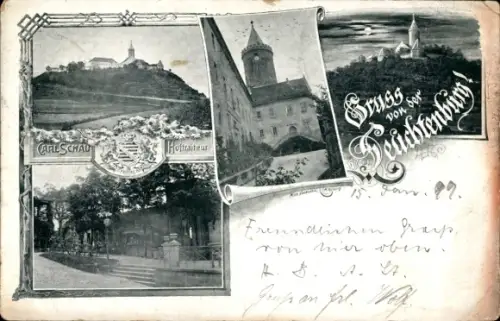 Gruss
von der
Leuchtenburg!
CARL SCHAU
Hoftraiteur
15. Jan. 99.
Freundlichen Gruss
von hier oben.
Gruss an Frl. Wolf